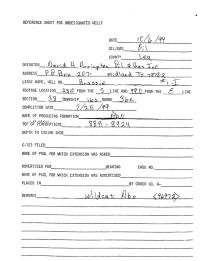 REFERENCE SHEET FOR UNDESIGNATED WELLS
DATE 10/6/99
OIL/GAS Oil
COUNTY Lea
OPERATOR David H. Arrington Oil & Gas Inc
ADDRESS P O Box 2071 Midland Tx 79702
LEASE NAME, WELL NO. Brassie #1-I
FOOTAGE LOCATION FROM THE S LINE AND 990 FROM THE E LINE
SECTION 33 TOWNSHIP 16S RANGE 36E
COMPLETION DATE 7/25/99
NAME OF PRODUCING FORMATION Abo
TOP OF PERFORATIONS
DEPTH TO CASING SHOE
C-123 FILED
NAME OF POOL FOR WHICH EXTENSION WAS ASKED
ADVERTISED FOR HEARING CASE NO.
NAME OF POOL FOR WHICH EXTENSION WAS ADVERTISED
PLACED IN BY ORDER NO. R-
REMARKS Wildcat Abo